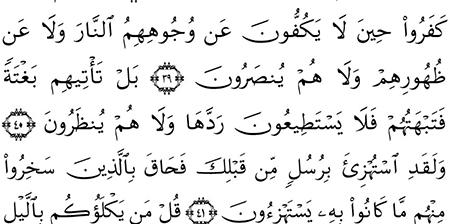 كَفَرُوا۟ حِينَ لَا يَكُفُّونَ عَن وُجُوهِهِمُ ٱلنَّارَ وَلَا عَن
ظُهُورِهِمْ وَلَا هُمْ يُنصَرُونَ ﴿٣٩﴾ بَلْ تَأْتِيهِم بَغْتَةً
فَتَبْهَتُهُمْ فَلَا يَسْتَطِيعُونَ رَدَّهَا وَلَا هُمْ يُنظَرُونَ ﴿٤٠﴾
وَلَقَدِ ٱسْتُهْزِئَ بِرُسُلٍ مِّن قَبْلِكَ فَحَاقَ بِٱلَّذِينَ سَخِرُوا۟
مِنْهُم مَّا كَانُوا۟ بِهِۦ يَسْتَهْزِءُونَ ﴿٤١﴾ قُلْ مَن يَكْلَؤُكُم بِٱلَّيْلِ